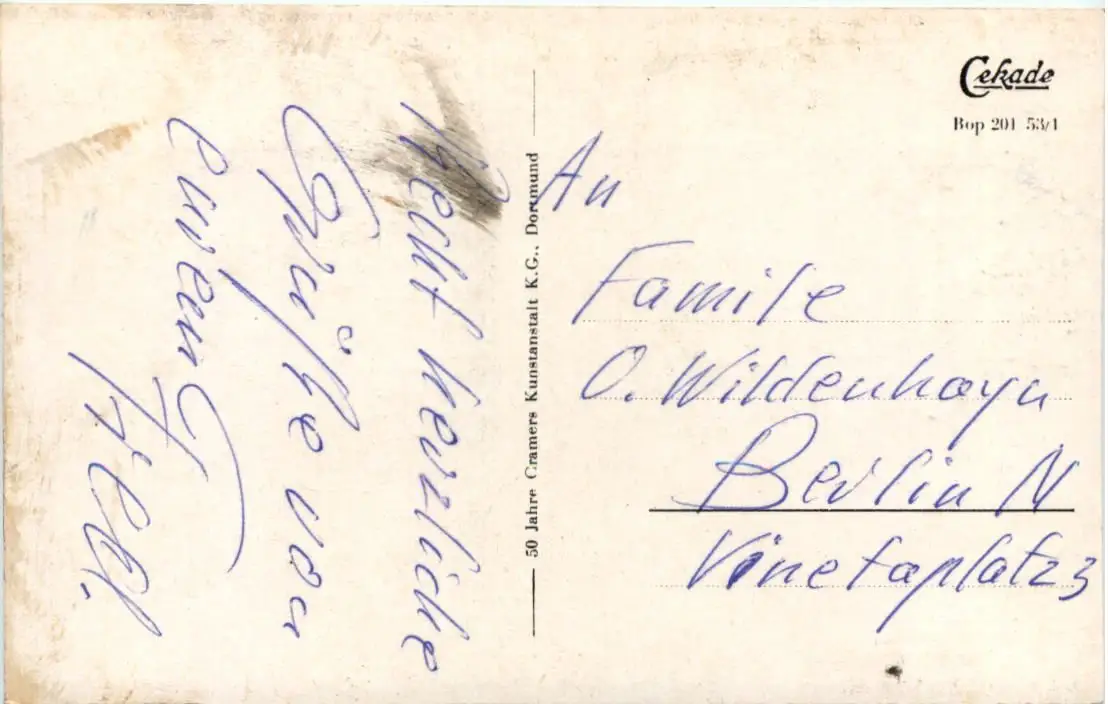 Recht herzliche
Grüße von
eurem
50 Jahre Cramers Kunstanstalt K.G., Dortmund
Cekade
Bop 201 53/1
An
Famile
O. Wildenhayn
Berlin N
Vinetaplatz 3